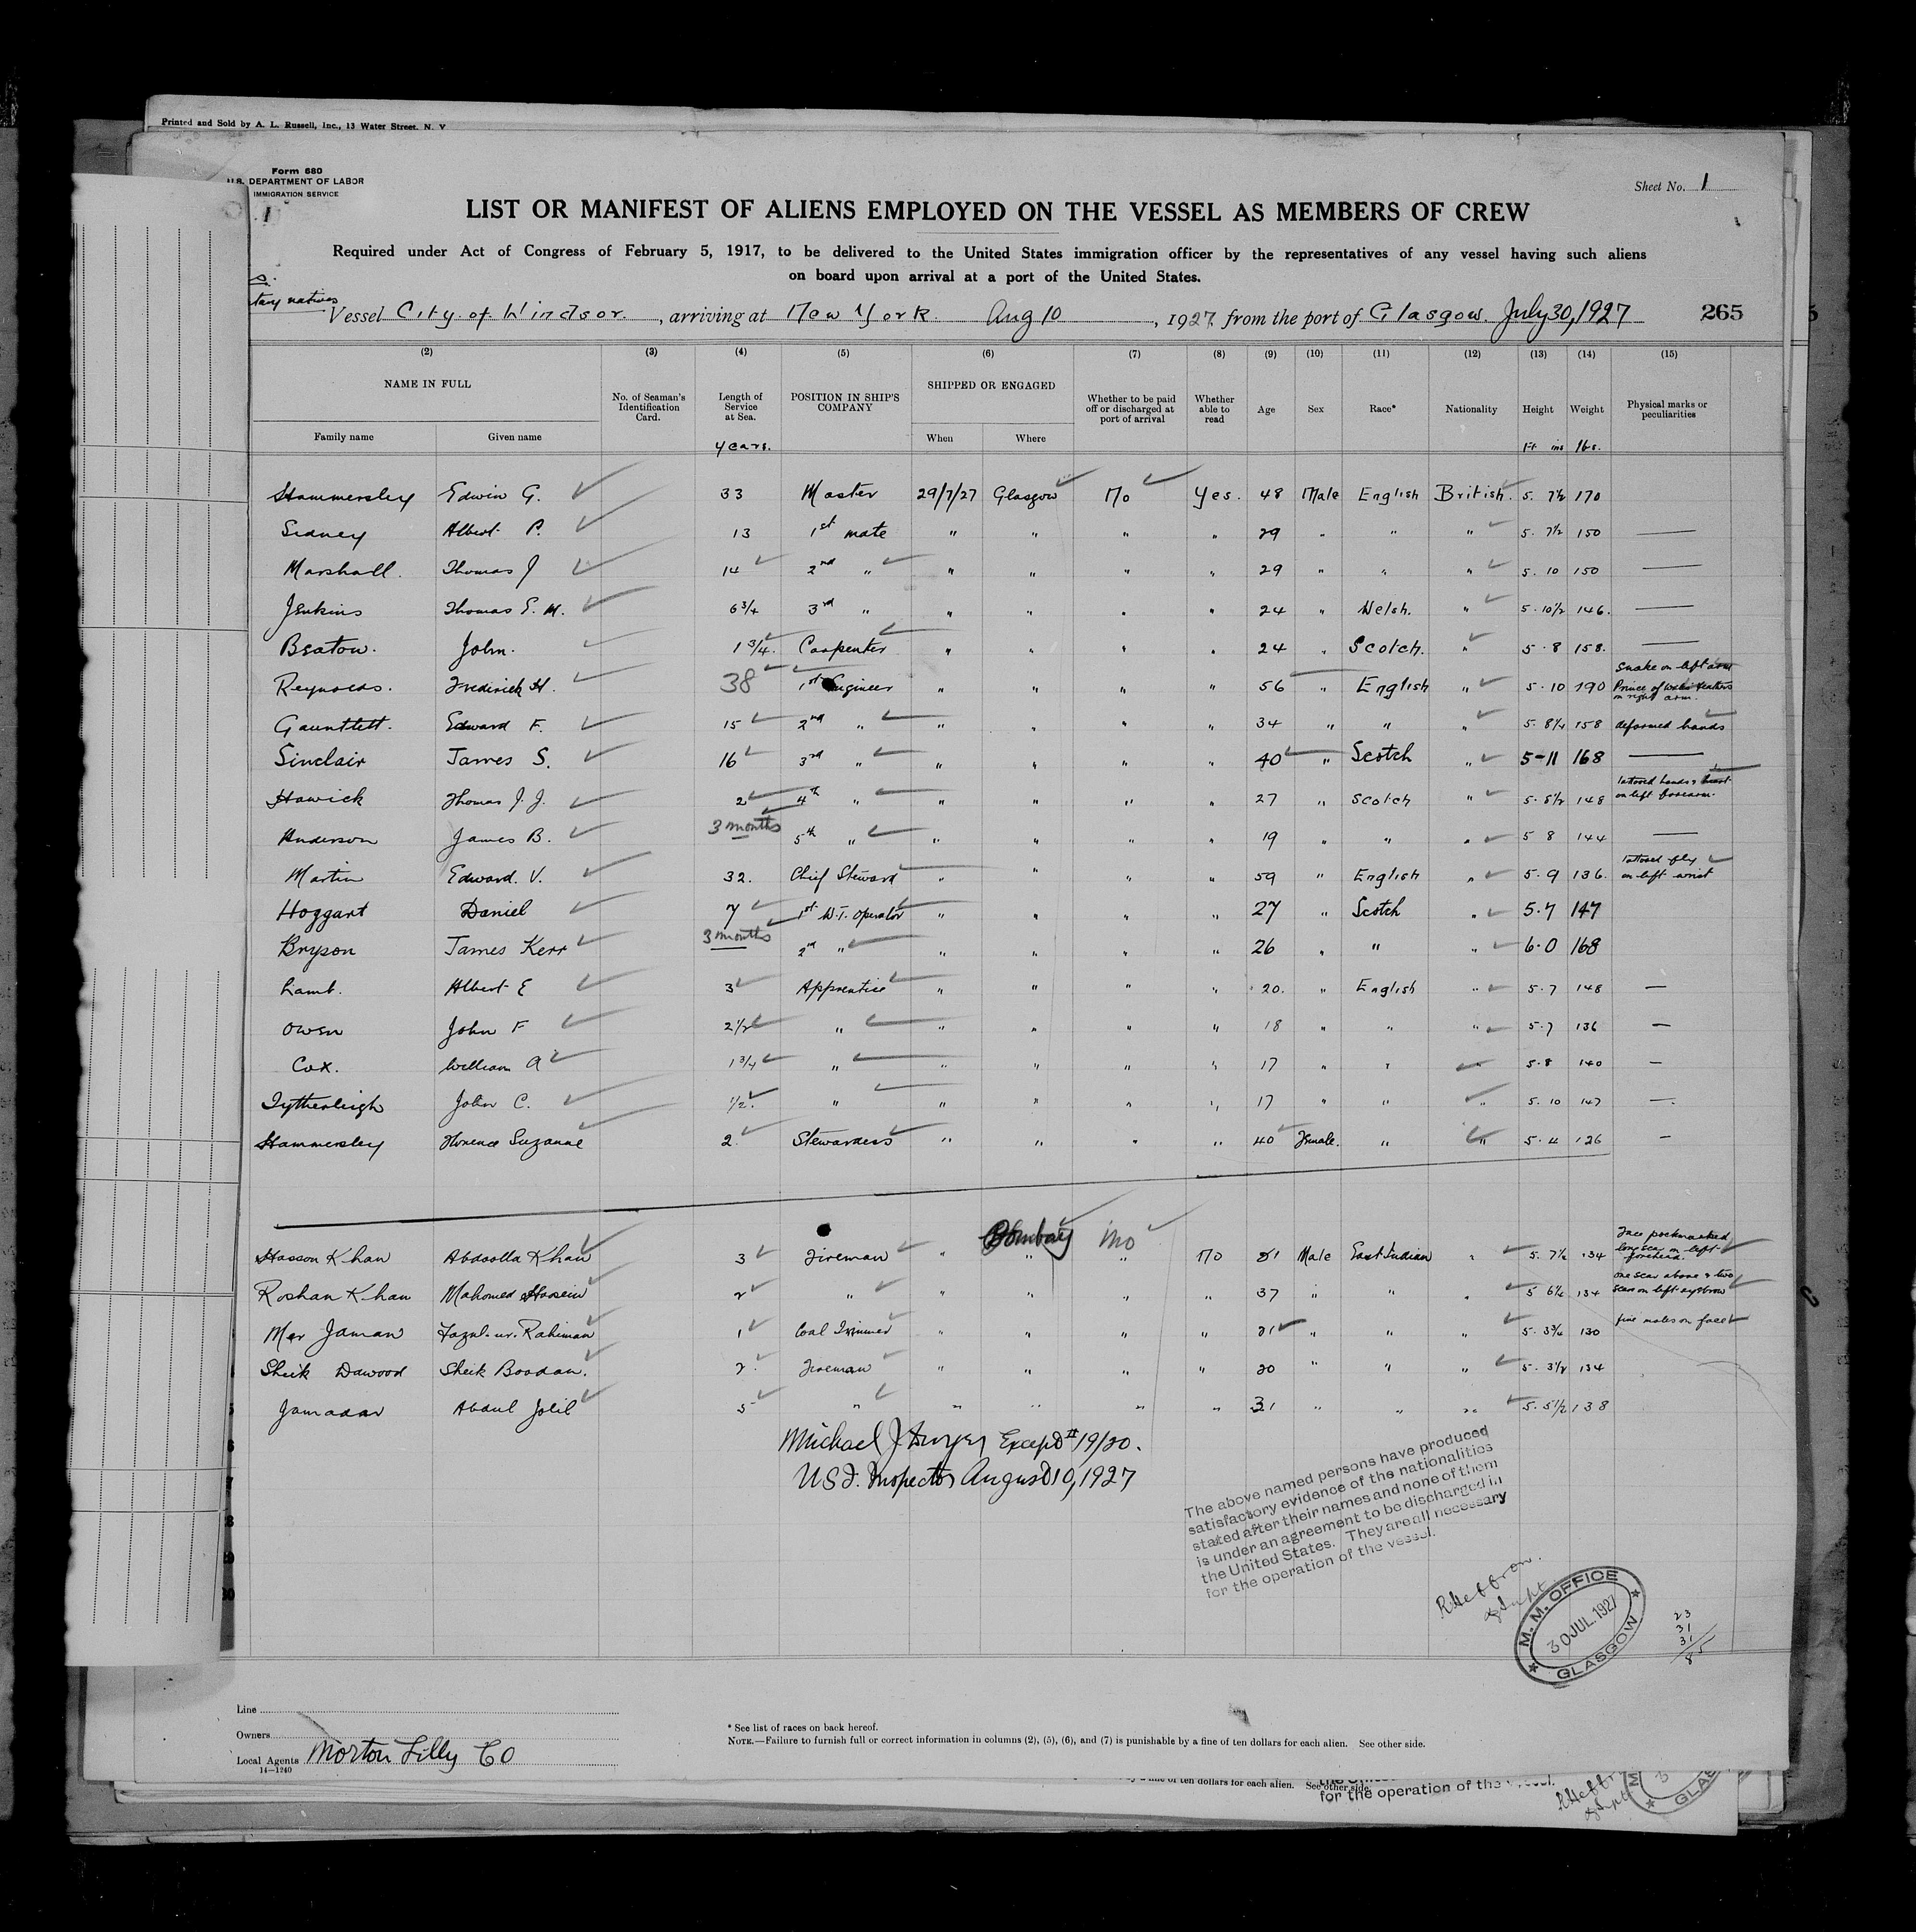 Printed and Sold by A. L. Russell, Inc., 13 Water Street, N. Y.
Form 680
U.S. DEPARTMENT OF LABOR
IMMIGRATION SERVICE
Sheet No. 1
LIST OR MANIFEST OF ALIENS EMPLOYED ON THE VESSEL AS MEMBERS OF CREW
Required under Act of Congress of February 5, 1917, to be delivered to the United States immigration officer by the representatives of any vessel having such aliens
on board upon arrival at a port of the United States.
natives
Vessel City of Windsor, arriving at New York Aug 10, 1927, from the port of Glasgow. July 30, 1927 265
(2) (3) (4) (5) (6) (7) (8) (9) (10) (11) (12) (13) (14) (15)
NAME IN FULL No. of Seaman's Identification Card. Length of Service at Sea. POSITION IN SHIP'S COMPANY SHIPPED OR ENGAGED Whether to be paid off or discharged at port of arrival Whether able to read Age Sex Race* Nationality Height Weight Physical marks or peculiarities
Family name Given name years. When Where Ft ins lbs.
Hammersley Edwin G. 33 Master 29/7/27 Glasgow No Yes. 48 Male English British. 5. 7½ 170
Sidney Albert P. 13 1st mate " " " " 29 " " " 5. 7½ 150 —
Marshall. Thomas J 14 2nd " " " " " 29 " " " 5. 10 150 —
Jenkins Thomas E. M. 6¾ 3rd " " " " " 24 " Welsh. " 5. 10½ 146. —
Beaton. John. 1¾. Carpenter " " " " 24 " Scotch. " 5. 8 158. —
Reynolds. Frederick H. 38 1st Engineer " " " " 56 " English " 5. 10 190 Snake on left arm Prince of Wales feathers on right arm.
Gauntlett. Edward F. 15 2nd " " " " " 34 " " " 5. 8¼ 158 deformed hands
Sinclair James S. 16 3rd " " " " " 40 " Scotch " 5-11 168 —
Hawick Thomas J. J. 2 4th " " " " " 27 " Scotch " 5. 5½ 148 tattooed hands & heart on left forearm.
Anderson James B. 3 months 5th " " " " " 19 " " " 5 8 144 —
Martin Edward. V. 32. Chief Steward " " " " 59 " English " 5. 9 136. tattooed fly on left wrist
Hoggart Daniel 7 1st W.T. operator " " " " 27 " Scotch " 5.7 147
Bryson James Kerr 3 months 2nd " " " " " 26 " " " 6.0 168
Lamb. Albert E 3 Apprentice " " " " 20. " English " 5.7 148 —
Owen John F 2½ " " " " " 18 " " " 5.7 136 —
Cox. William A 1¾ " " " " " 17 " " " 5.8 140 —
Tytherleigh John C. ½. " " " " " 17 " " " 5. 10 147 —.
Hammersley Florence Suzanne 2 Stewardess " " " " 40 Female. " " 5. 4 126 —
Bombay no
Hasson Khan Abdoolla Khan 3 Fireman " " " No 31 Male East Indian " 5. 7½ 134 Face pockmarked long scar on left forehead
Roshan Khan Mahomed Hossein 2 " " " " " 37 " " " 5 6½ 134 one scar above & two scars on left eyebrow
Mer Jaman Fazul-ur-Rahiman 1 Coal Trimmer " " " " 21 " " " 5. 3¾ 130 five moles on face
Sheik Dawood Sheik Boodan. 2 Fireman " " " " 20 " " " 5. 3½ 134
Jamadar Abdul Jolil 5 " " " " " 31 " " " 5. 5½ 138
Michael J Dwyer Except # 19/20.
U.S.I. Inspector August 10, 1927
The above named persons have produced
satisfactory evidence of the nationalities
stated after their names and none of them
is under an agreement to be discharged in
the United States. They are all necessary
for the operation of the vessel.
RHeffron.
M. M. OFFICE
30 JUL. 1927
GLASGOW
23
31
31
85
Line
Owners
Local Agents Morton Lilly Co
14—1240
* See list of races on back hereof.
NOTE.—Failure to furnish full or correct information in columns (2), (5), (6), and (7) is punishable by a fine of ten dollars for each alien. See other side.
of ten dollars for each alien. See other side.
for the operation of the vessel.